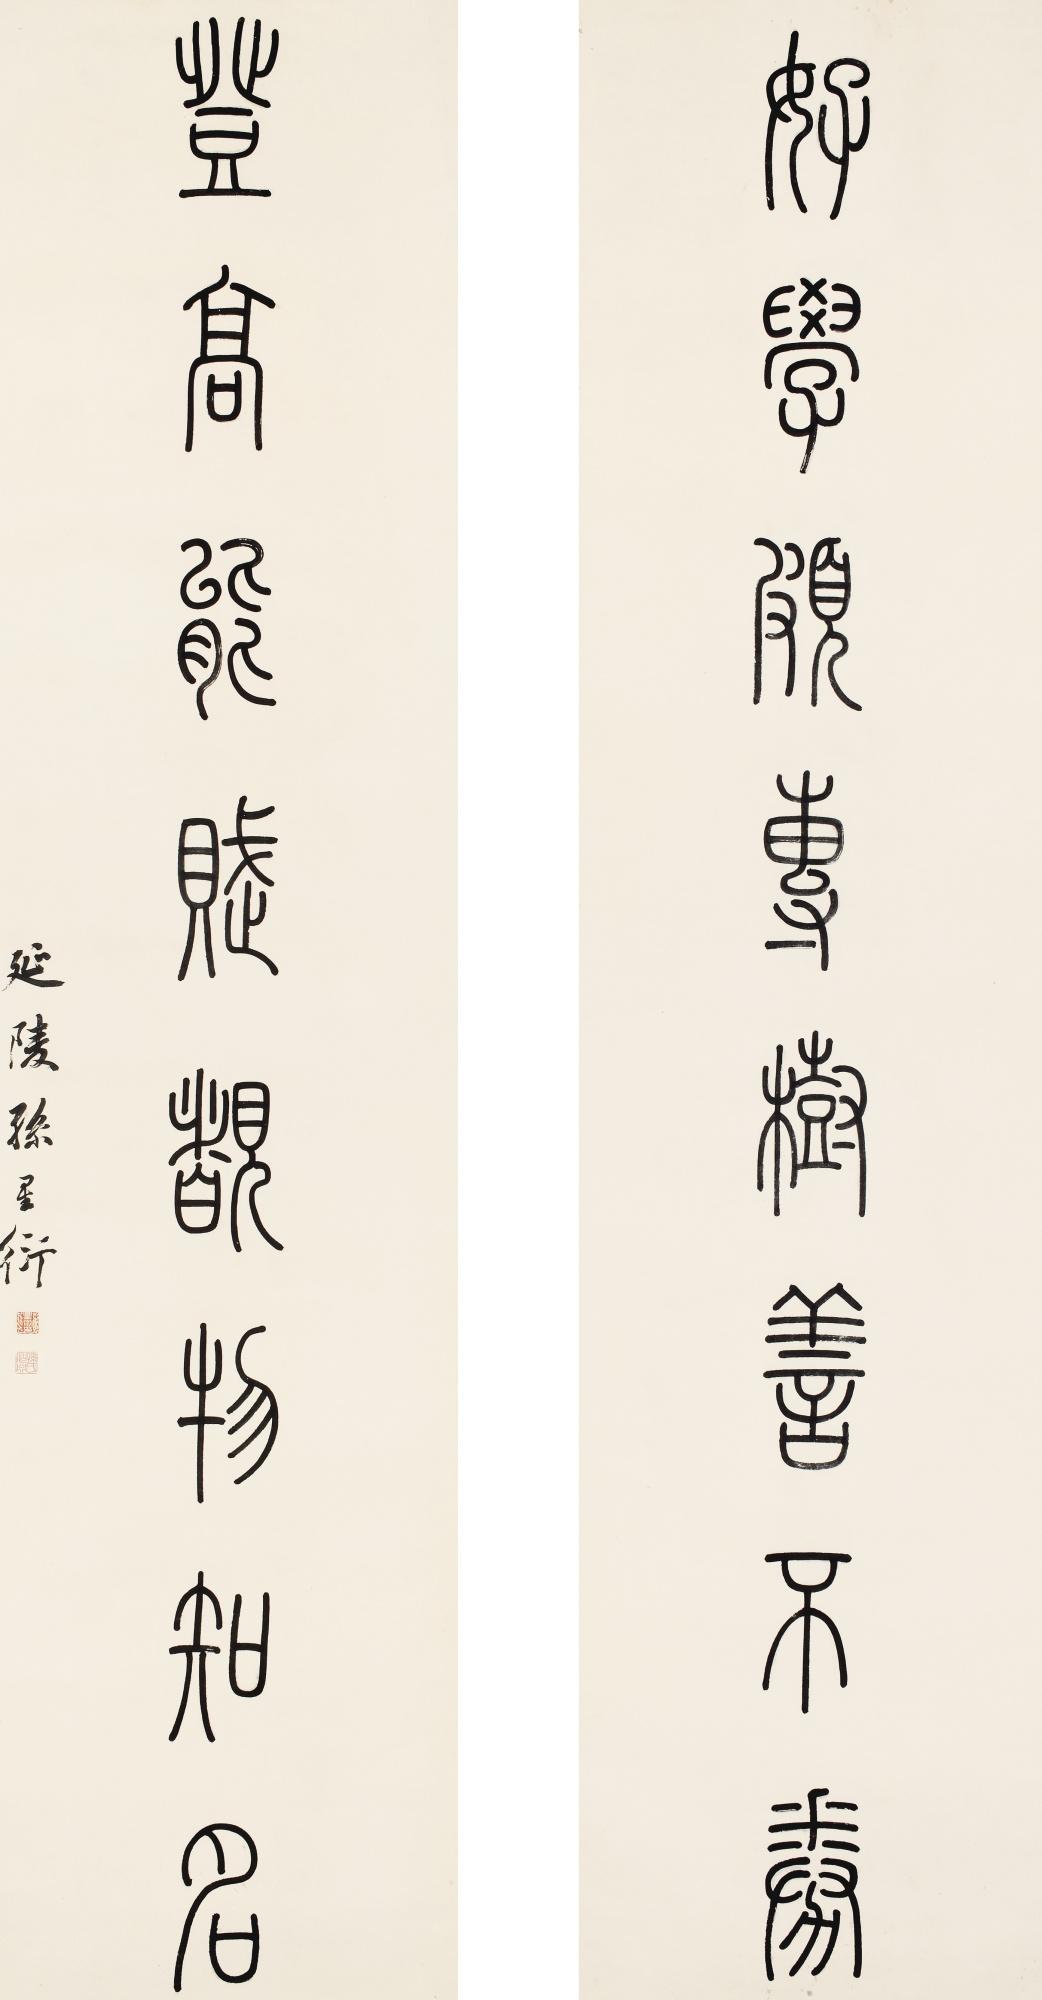 好學頗專樹善不劵
登高能賦覩物知名
延陵孫星衍